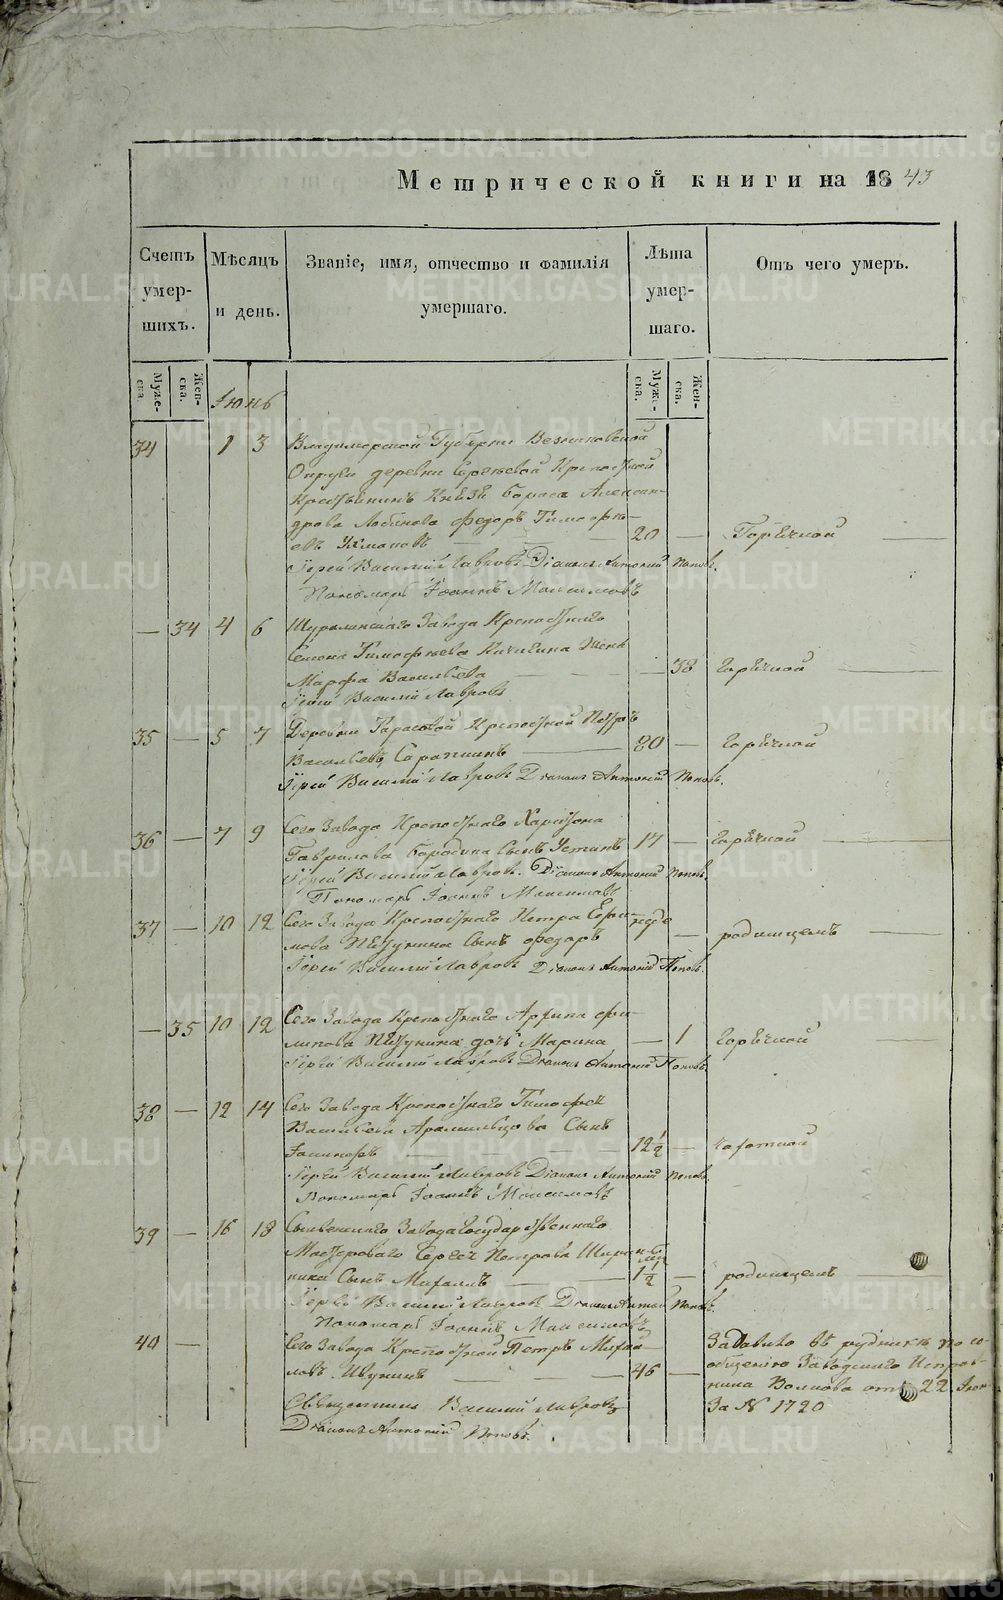 Метрической книги на 1843
Счетъ умер- шихъ.
Мѣсяцъ и день.
Званіе, имя, отчество и фамилія умершаго.
Лѣта умер- шаго.
Отъ чего умеръ.
Муже- ска.
Жен- ска.
Муже- ска.
Жен- ска.
Іюнь
34 1 3 Владимирской Губерніи
Округи деревни Крепостной
Крестьянинъ Князя Бориса Алексан-
дрова Лобанова Федоръ Тимофѣ-
евъ 20 — Горячкой
Іерей Василій Лавровъ Діаконъ Антоній Поповъ.
Пономарь Іоаннъ Максимовъ
— 34 4 6 Шуралинскаго Завода Крепостнаго
Семена Тимофѣева Кичигина Жена
Марфа Васильева — 38 горячкой
Іерей Василій Лавровъ
35 — 5 7 Деревни Тарасовой Крепостной Петръ
Васильевъ Сарапкинъ 80 — горячкой
Іерей Василій Лавровъ Діаконъ Антоній Поповъ.
36 — 7 9 Сего Завода Крепостнаго Харитона
Гаврилова Бородина Сынъ Устинъ 17 — горячкой
Іерей Василій Лавровъ. Діаконъ Антоній Поповъ
Пономарь Іоаннъ Максимовъ
37 — 10 12 Сего Завода Крепостнаго Петра Ефи-
мова Сынъ Федоръ — родимцемъ
Іерей Василій Лавровъ Діаконъ Антоній Поповъ.
— 35 10 12 Сего Завода Крепостнаго Фи-
липова дочь Марина — 1 горячкой
Іерей Василій Лавровъ Діаконъ Антоній Поповъ
38 — 12 14 Сего Завода Крепостнаго Тимофея
Васильева Арамильцова Сынъ
12 1/2 — чахоткой
Іерей Василій Лавровъ Діаконъ Антоній Поповъ
Пономарь Іоаннъ Максимовъ
39 — 16 18 Завода Государственнаго
Мастероваго Сергея Петрова Ширин-
кина Сынъ Михаилъ 1 1/2 — родимцемъ
Іерей Василій Лавровъ Діаконъ Антоній Поповъ.
Пономарь Іоаннъ Максимовъ
40 — Сего Завода Крепостной Петръ Михай-
ловъ 46 —
Задавило въ рудникѣ по со-
общенію Заводскаго Исправ-
ника Волкова отъ 22 Іюня
За № 1720
Священникъ Василій Лавровъ
Діаконъ Антоній Поповъ.
METRIKI.GASO-URAL.RU